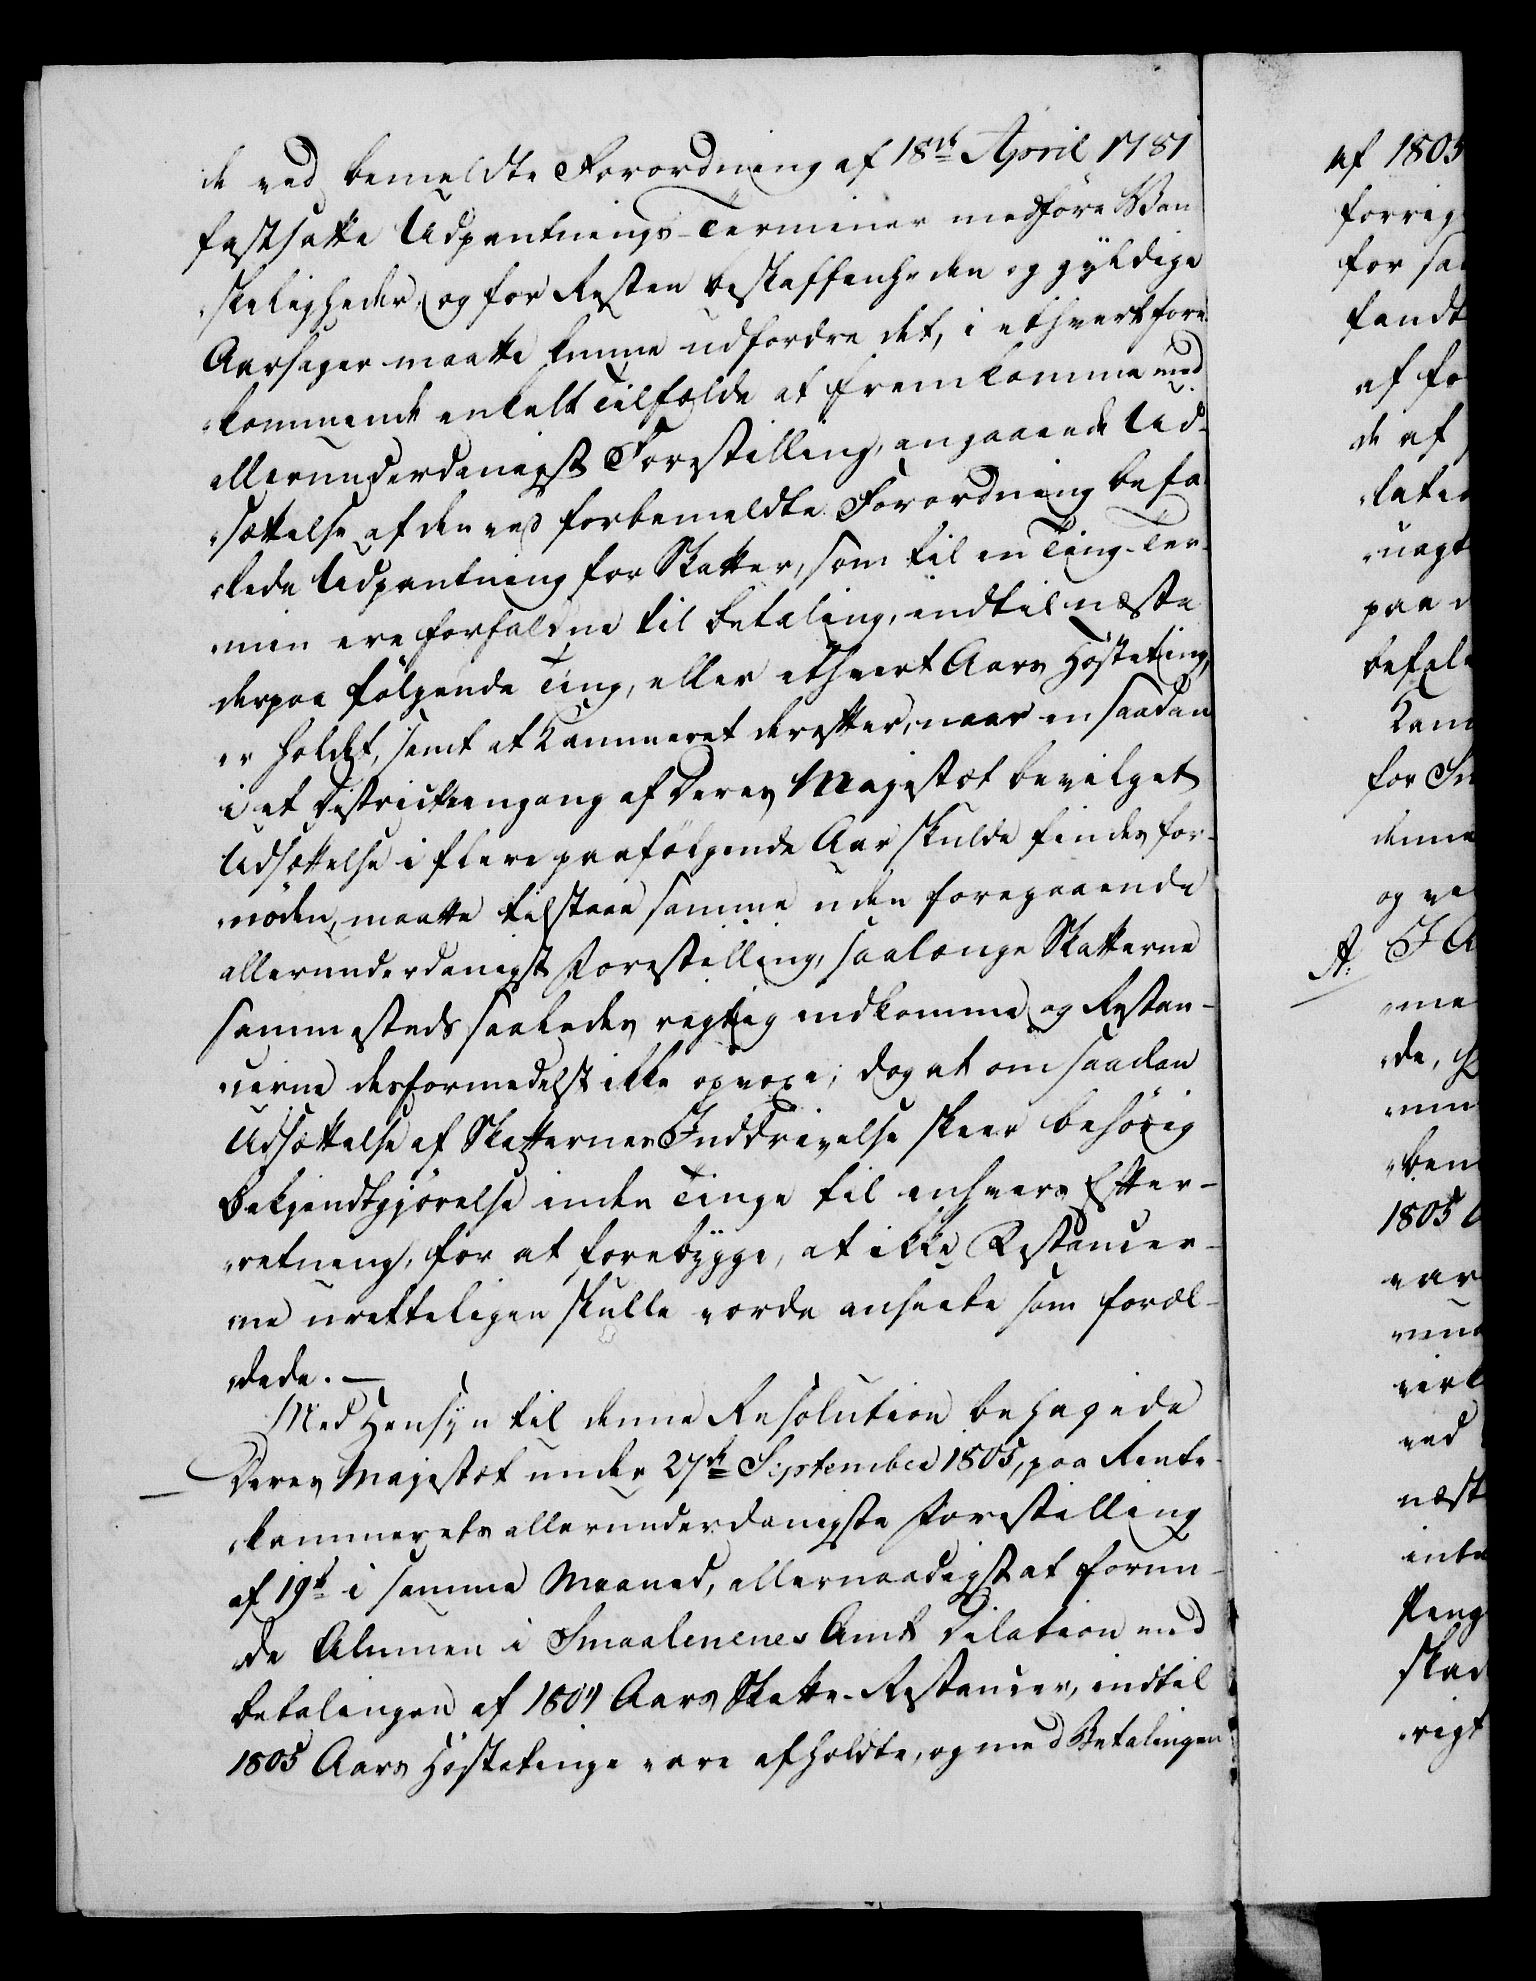 de ved bemeldte Forordning af 18de April 1781
fastsatte Udpantnings-Terminer medföre Van
skeligheder, og for Resten beskaffenheden og gyldige
Aarsager maatte kunne udfordre det, i ethvert fore
kommende enkelt Tilfælde at fremkomme med
allerunderdanigst Forestilling, angaaende Ud-
sættelse af den ved forbemeldte Forordning befa
lede Udpantning for Skatter, som til en Ting-Ter-
min ere forfaldne til betaling, indtil næste
derpaa fölgende Ting, eller ethvert Aars Hösteting,
er holdet, samt at Kammeret derefter, naar en saadan
i et District eengang af Deres Majestæt bevilget
Udsættelse i flere paafölgende Aar skulde findes for-
nöden, maatte tilstaae samme uden foregaaende
allerunderdanigst Forestilling, saalænge Skatterne
sammesteds saaledes rigtig indkomme, og Restan-
cerne desformedelst ikke opvoxe; dog at om saadan
Udsættelse af Skatternes Inddrivelse skeer behörig
Bekjendtgjörelse inden Tinge til enhvers Efter-
retning, for at forebygge, at ikke Restancer-
ne uretteligen skulle vorde anseete som foræl-
dede. —
Med Hensyn til denne Resolution behagede
Deres Majestæt under 27de September 1805, paa Rente-
kammerets allerunderdanigste Forestilling
af 19de i samme Maaned, allernaadigst at forun-
de Almuen i Smaalenenes Amt Dilation med
betalingen af 1804 Aars Skatte-Restancer, indtil
1805 Aars Höstetinge vare afholdte, og med Betalingen
af 1805
forrig
for saa
fandt
af fo
de af
paa
befal
Kam
for
denne
og ve
A.
de,
1805
var
ved
næst
Peng
skad
rigt